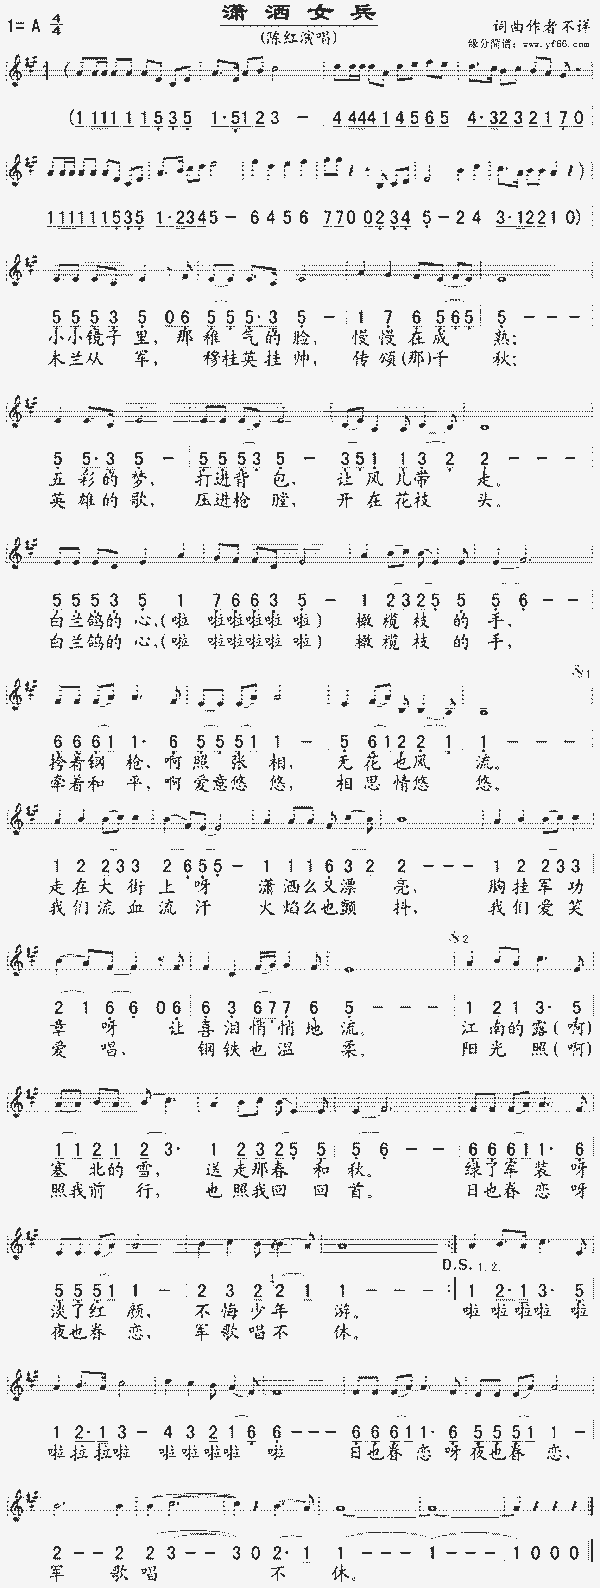 潇洒女兵
1= A 4/4
(陈红演唱)
词曲作者不详
缘分简谱: www.yf66.com
(1 111 1 1 1 5 3 5 1·5 1 2 3 – 4 4 4 4 4 1 4 5 6 5 4·3 2 3 2 1 7 0
1 1 1 1 1 1 1 5 3 5 1·2 3 4 5 – 6 4 5 6 7 7 0 0 2 3 4 5 – 2 4 3·1 2 2 1 0)
5 5 5 3 5 0 6 5 5 5·3 5 – 1 7 6 5 6 5 5 – – –
小小镜子里，那稚气的脸，慢慢在成熟；
木兰从军，穆桂英挂帅，传颂(那)千秋；
5 5·3 5 – 5 5 5 3 5 – 3 5 1 1 3 2 2 – – –
五彩的梦，打进背包，让风儿带走。
英雄的歌，压进枪膛，开在花枝头。
5 5 5 3 5 1 7 6 6 3 5 – 1 2 3 2 5 5 6 – –
白兰鸽的心，(啦啦啦啦啦啦)橄榄枝的手，
白兰鸽的心，(啦啦啦啦啦啦)橄榄枝的手，
𝄋1
6 6 6 1 1·6 5 5 5 1 1 – 5 6 1 2 2 1 1 – – –
挎着钢枪，啊照张相，无花也风流。
牵着和平，啊爱意悠悠，相思情悠悠。
1 2 2 3 3 2 6 5 5 – 1 1 1 6 3 2 2 – – – 1 2 2 3 3
走在大街上呀潇洒么又漂亮，胸挂军功
我们流血流汗火焰么也颤抖，我们爱笑
𝄋2
2 1 6 6 0 6 6 3 6 7 7 6 5 – – – 1 2 1 3· 5
章呀让喜泪悄悄地流。江南的露(啊)
爱唱，钢铁也温柔。阳光照(啊)
1 1 2 1 2 3· 1 2 3 2 5 5 5 6 – – 6 6 6 1 1· 6
塞北的雪，送走那春和秋。绿了军装呀
照我前行，也照我回回首。日也春恋呀
D.S. 1.2.
5 5 5 1 1 – 2 3 2 2 2 1 1 – – – :| 1 2·1 3· 5
淡了红颜，不悔少年游。啦啦啦啦啦
夜也春恋，军歌唱不休。
1 2·1 3 – 4 3 2 1 6 6 – – – 6 6 6 1 1·6 5 5 5 1 1 –
啦啦啦啦啦啦啦啦啦日也春恋呀夜也春恋，
2 – – 2 2 3 2 3 – – 3 0 2·1 1 – – – 1 – – – 1 0 0 0
军歌唱不休。